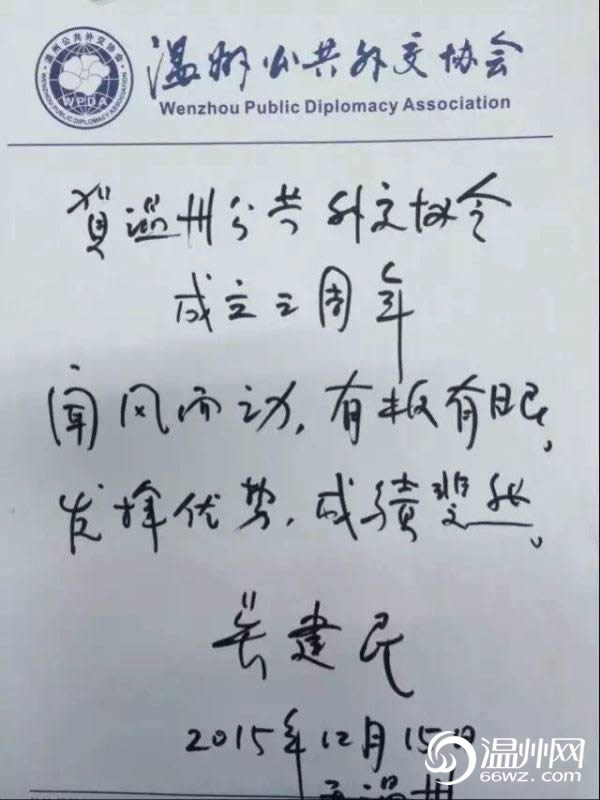 温州公共外交协会
WENZHOU PUBLIC DIPLOMACY ASSOCIATION
WPDA
温州公共外交协会
Wenzhou Public Diplomacy Association
贺温州公共外交协会
成立三周年
闻风而动，有板有眼，
发挥优势，成绩斐然。
吴建民
2015年12月15日
于温州
温州网
66wz.com